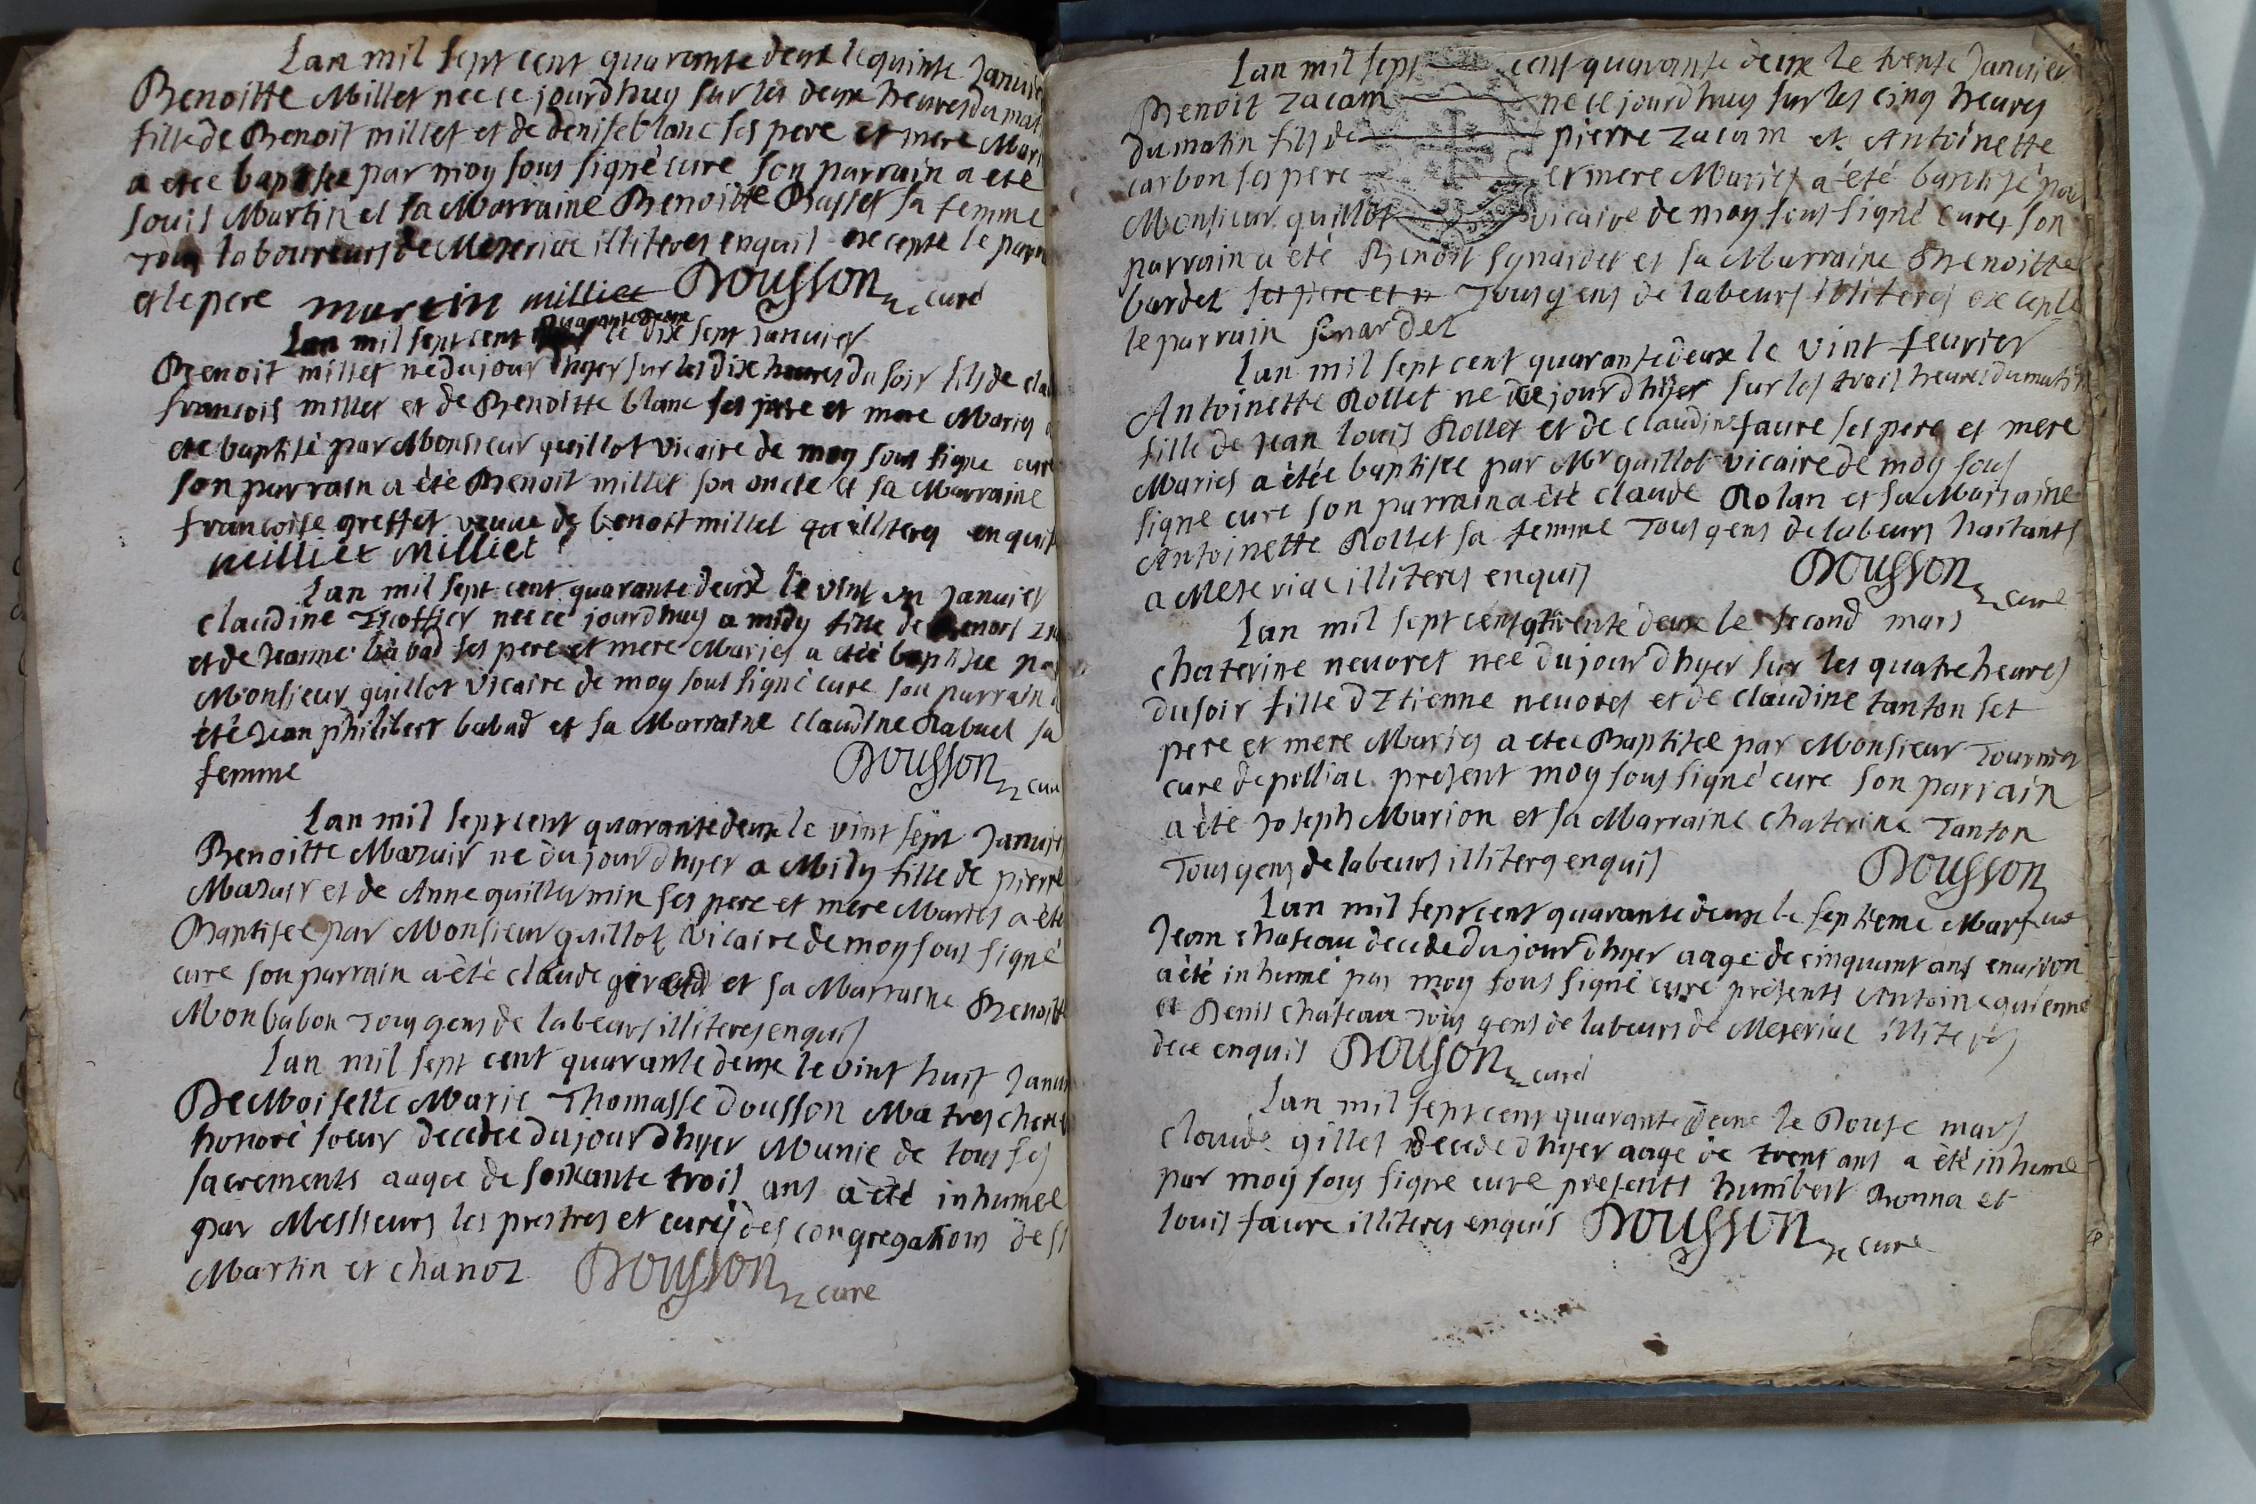 Lan mil sept cent quarante deux le quinte Januie
Benoitte Millet nee ce jourdhuy sur les deux heures du mat
fille de Benoit millet et de denise blanc ses pere et mere Mari
a etee baptisee par moy sous signé cure son parrain a eté
Louis Martin et sa Marraine Benoitte Basset sa femme
Tous laboureurs de Meseriac illiteres enquis excepte le parr
et le pere martin milliet Dousson curé
Lan mil sept cent quarante deux le dix sept Januier
Benoit millet ne du jour dhyer sur les dix heures du soir fils de cla
francois millet et de Benoitte blanc ses pere et mere Maries a
ete baptisé par Monsieur quillot vicaire de moy sous signe cure
son parrain a été Benoit millet son oncle et sa Marraine
francoise greffet veuue de benoit millet qu illiteres enquis
milliet Milliet
Lan mil sept cent quarante deux le vint un Januier
claudine Ticottier nee ce jourdhuy a midy fille de Benoit
et de Jeanne babad ses pere et mere Maries a etée baptisee pa
Monsieur quillot vicaire de moy sous signé cure son parrain a
été Jean philibert babad et sa Marraine claudine Rabuel sa
femme Dousson cure
Lan mil sept cent quarante deux le vint sept Januie
Benoitte Mazuir ne du jour dhyer a Midy fille de pierre
Mazuir et de Anne quillermin ses pere et mere Maries a été
Baptisee par Monsieur quillot vicaire de moy sous signé
cure son parrain a été claude et sa Marraine Benoitte
Monbabon Tous gens de labeurs illiteres enquis
Lan mil sept cent quarante deux le vint huit Januie
DeMoiselle Marie Thomasse Dousson Ma tres chere
honoré soeur decedee du jour dhyer Munie de tous ses
sacrements aagee de soixante trois ans a été inhumee
par Messieurs les prestres et curés des congregations de st
Martin et chanoz Dousson cure
Lan mil sept cent quarante deux le trente Januier
Benoit Zacam ne ce jourdhuy sur les cinq heures
du matin fils de pierre Zacam et Antoinette
carbon ses pere et mere Maries a été baptisé par
Monsieur quillot vicaire de moy sous signé cure son
parrain a été Benoit Synardet et sa Marraine Benoitte
bardet ses pere et m Tous gens de labeurs illiteres excepte
le parrain sinardet
Lan mil sept cent quarante deux le vint feurier
Antoinette Rollet ne de jour dhyer sur les trois heures du matin
fille de Jean louis Rollet et de claudine faure ses pere et mere
Maries a étée baptisee par Mr quillot vicaire de moy sous
signe cure son parrain a été claude Rolan et sa Marraine
Antoinette Rollet sa femme Tous gens de labeurs haitants
a Meseriac illiteres enquis Dousson cure
Lan mil sept cent deux le second mars
chaterine neuoret nee du jour dhyer sur les quatre heures
du soir fille dEtienne neuoret et de claudine tanton ses
pere et mere Maries a etee Baptisee par Monsieur Tournier
cure de polliac present moy sous signé cure son parrain
a été Joseph Murion et sa Marraine chaterine Tanton
Tous gens de labeurs illiteres enquis Dousson
Lan mil sept cent quarante deux le septieme Mars cure
Jean chateau decede du jour dhyer aage de cinquant ans enuiron
a été inhumé par moy sous signé cure presents Antoine guienne
et Denis chateau Tous gens de labeurs de Meseriac illiteres
de ce enquis Douson curé
Lan mil sept cent quarante deux le Douse mars
claude gillet decede dhyer aage de trent ans a été inhume
par moy sous signe cure presents humbert Bonna et
louis faure illiteres enquis Dousson cure